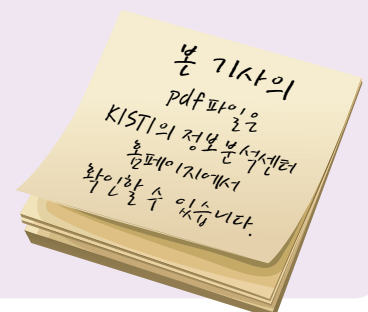 본 기사의
pdf파일은
KISTI의 정보분석센터
홈페이지에서
확인할 수 있습니다.